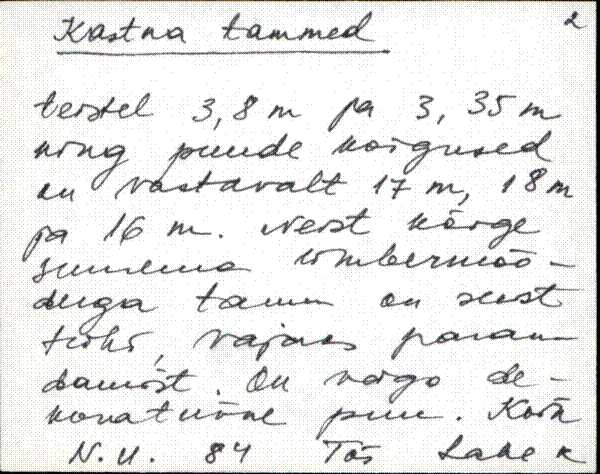 Kastna tammed 2
teistel 3,8 m ja 3,35 m
ning puude kõrgused
on vastavalt 17 m, 18 m
ja 16 m. Neist kõige
suurema ümbermõõ-
duga tamm on seest
tühi, vajaks paran-
damist. On väga de-
koratiivne puu. Kõik
N.U. 84